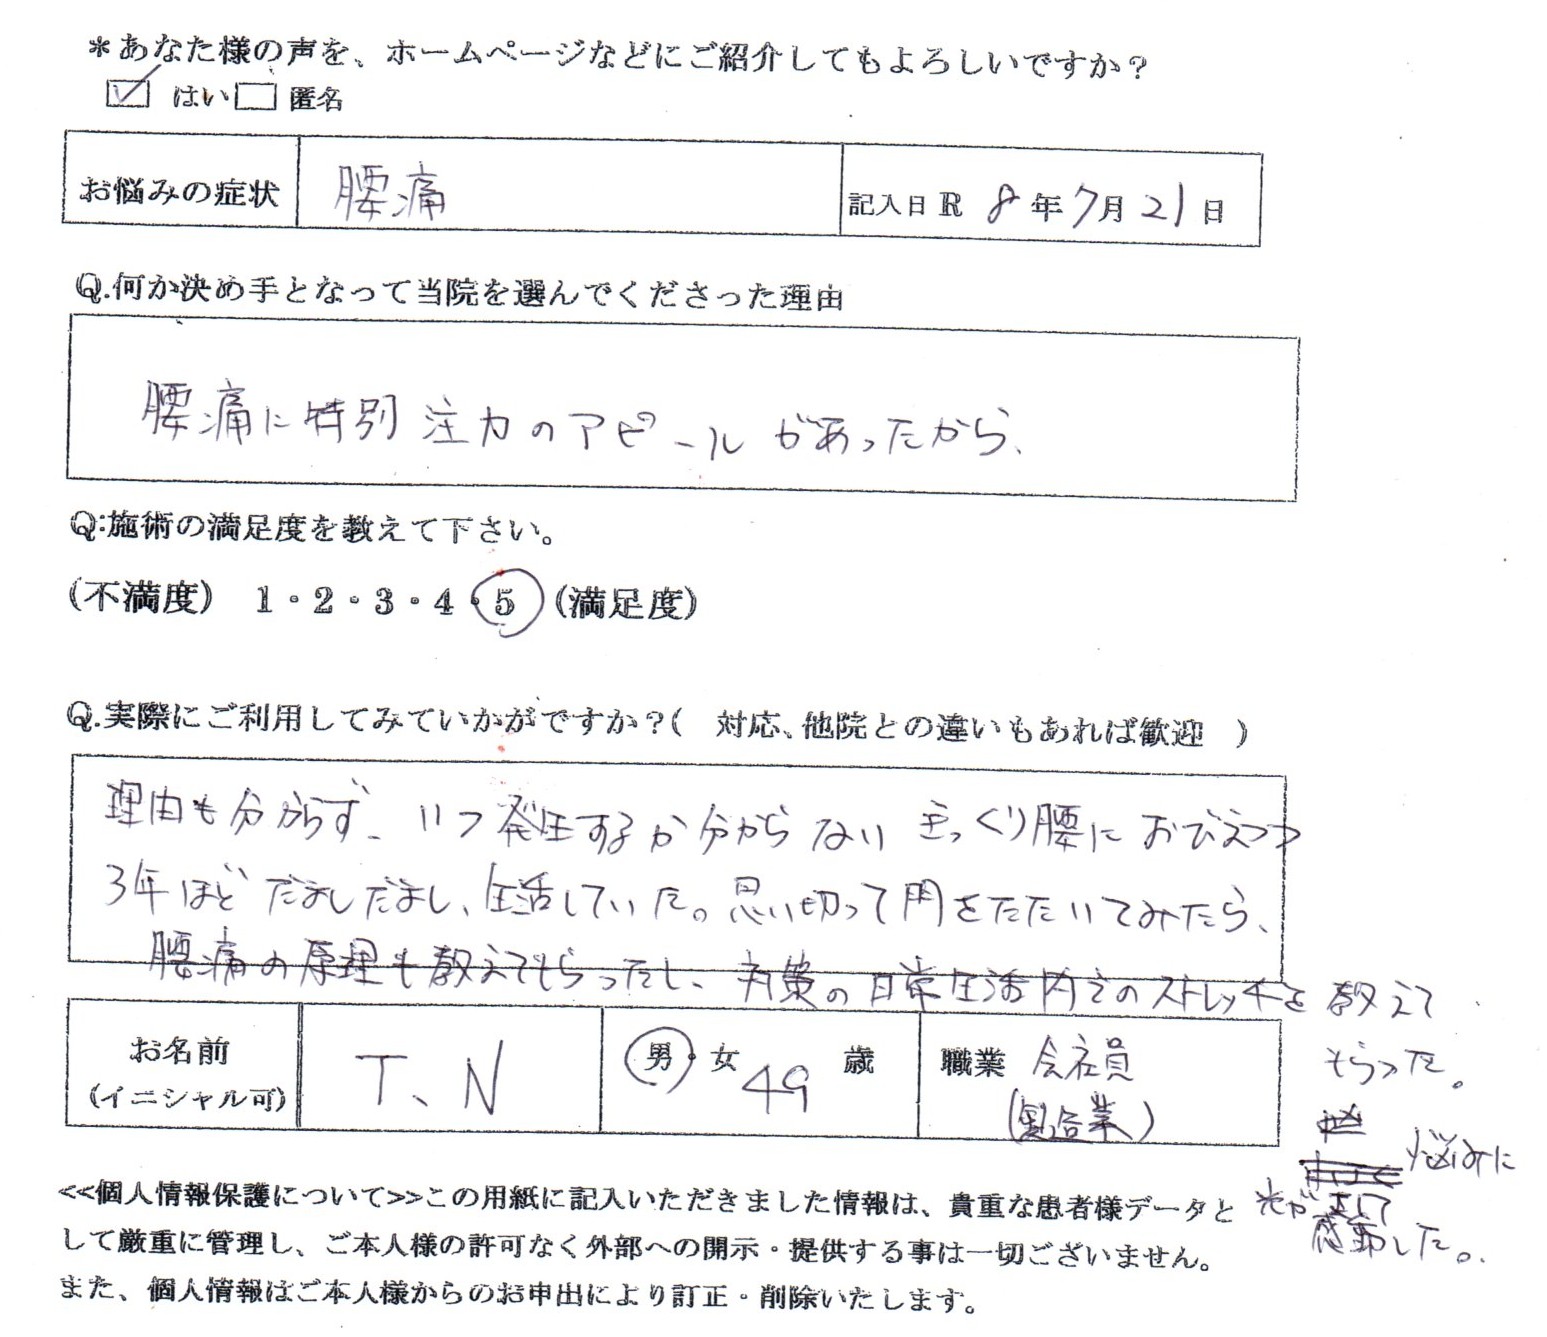 ＊あなた様の声を、ホームページなどにご紹介してもよろしいですか？
☑ はい □ 匿名
お悩みの症状 腰痛 記入日 R 8年7月21日
Q.何か決め手となって当院を選んでくださった理由
腰痛に特別注力のアピールがあったから、
Q:施術の満足度を教えて下さい。
(不満度) 1・2・3・4・5 (満足度)
Q.実際にご利用してみていかがですか？( 対応、他院との違いもあれば歓迎 )
理由も分からず、いつ発生するか分からない ぎっくり腰に おびえつつ
3年ほど だましだまし、生活していた。思い切って門をたたいてみたら、
腰痛の原理も教えてもらったし、対策の日常生活内でのストレッチを教えて
もらった。
悩みに
感動した。
お名前 T、N 男・女 49 歳 職業 会社員
(イニシャル可)
<<個人情報保護について>>この用紙に記入いただきました情報は、貴重な患者様データと
して厳重に管理し、ご本人様の許可なく外部への開示・提供する事は一切ございません。
また、個人情報はご本人様からのお申出により訂正・削除いたします。